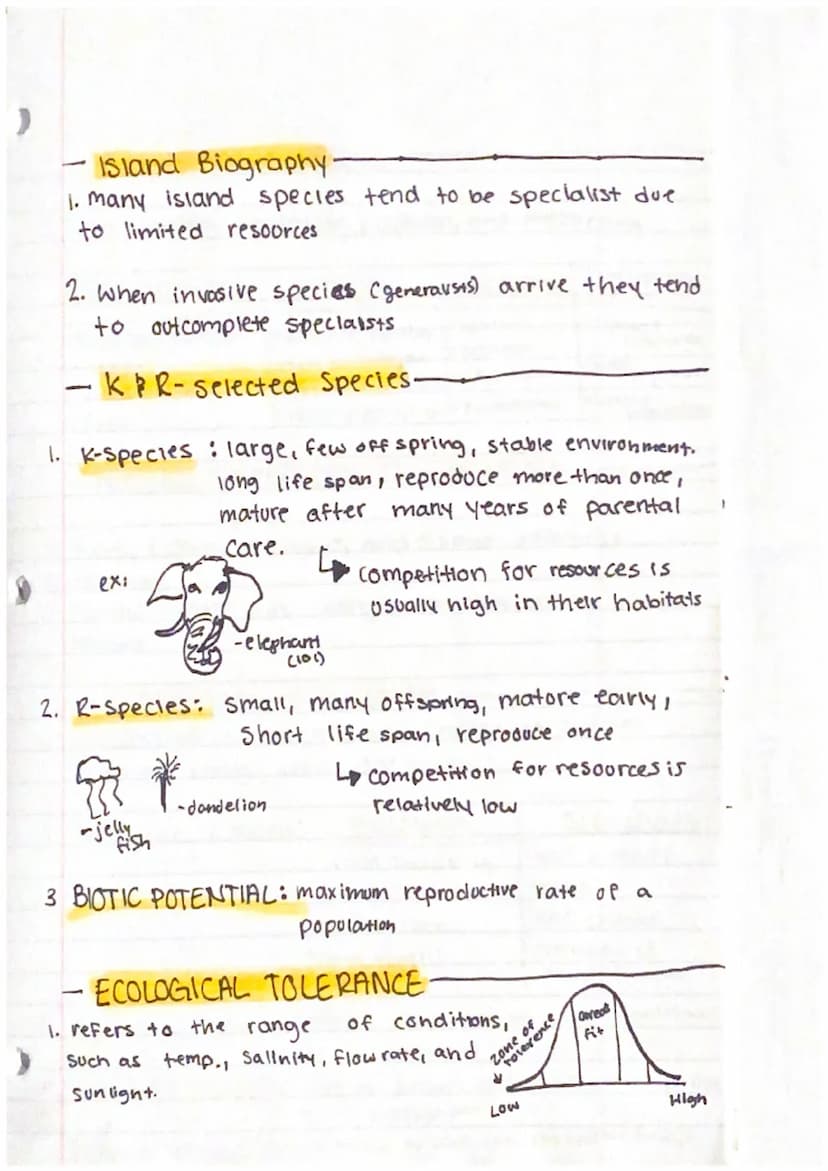 — Island Biography
1. Many island species tend to be specialist due
to limited resources
2. When invasive species (generalists) arrive they tend
to outcomplete specialists
— K & R-selected Species
1. K-species : large, few offspring, stable environment.
long life span, reproduce more than once,
mature after many years of parental
care.
↳ competition for resources is
usually high in their habitats
ex:
-elephant
(lol)
2. R-species: Small, many offspring, mature early,
Short life span, reproduce once
↳ competition for resources is
relatively low
-dandelion
-jelly
fish
3 BIOTIC POTENTIAL: maximum reproductive rate of a
population
— ECOLOGICAL TOLERANCE
1. refers to the range of conditions,
such as temp., Salinity, flow rate, and
sunlight.
zone of
tolerence
fit
Low
High